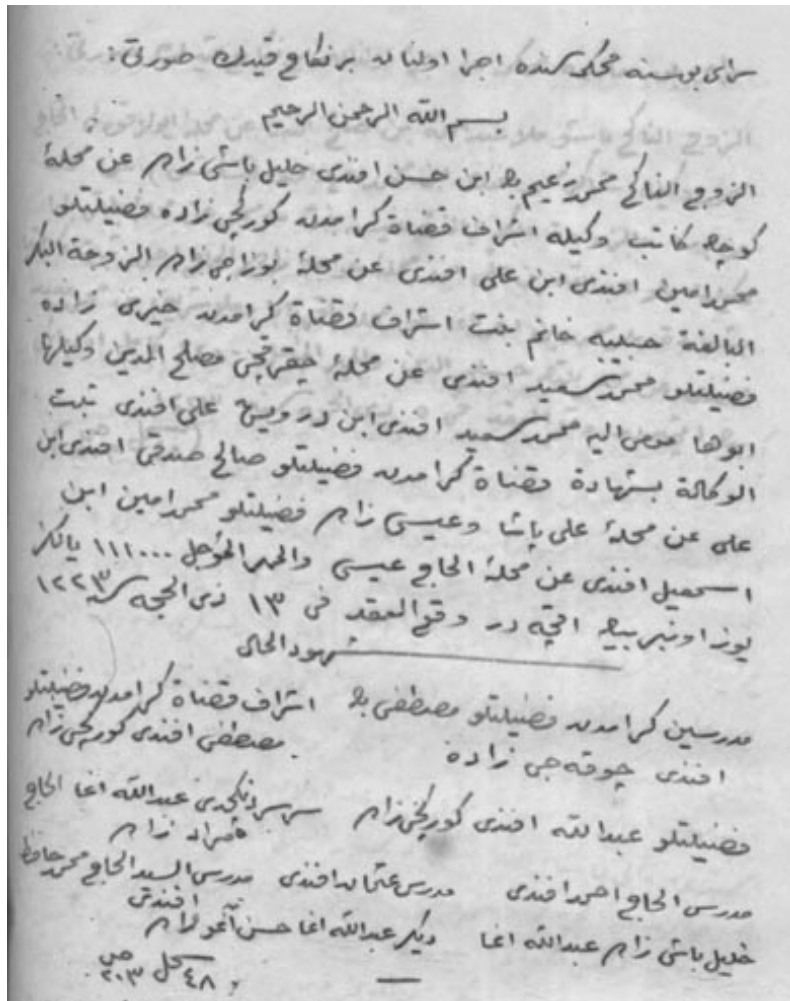 سراى بوسنه محكمه سنده اجرا اولنان بر نكاح قيدك صورتى:
بسم الله الرحمن الرحيم
الزوج الناكح محمد زعيم بك ابن حسن افندى خليل باشى زاده عن محلهٔ
كوچك كاتب وكيله اشراف قضاة كرامدن كوركجى زاده فضيلتلو
محمد امين افندى ابن على افندى عن محلهٔ بوزاجى زاده الزوجة البكر
البالغة حبيبه خانم بنت اشراف قضاة كرامدن خيرى زاده
فضيلتلو محمد سعيد افندى عن محلهٔ چقرقجى مصلح الدين وكيلها
ابوها مومى اليه محمد سعيد افندى ابن درويش على افندى ثبت
الوكالة بشهادة قضاة كرامدن فضيلتلو صالح صدقى افندى ابن
على عن محلهٔ على پاشا وعيسى زاده فضيلتلو محمد امين ابن
اسمعيل افندى عن محلهٔ الحاج عيسى والمهر المؤجل ١١١٠٠٠ يالكز
يوز اون بر بيك اقچه در وقع العقد فى ١٣ ذى الحجه سنه ١٢٢٣
شهود الحال
مدرسين كرامدن فضيلتلو مصطفى بك اشراف قضاة كرامدن فضيلتلو
افندى چوقه جى زاده مصطفى افندى كوركجى زاده
فضيلتلو عبدالله افندى كوركجى زاده سر عبدالله اغا الحاج
زاده
مدرس الحاج احمد افندى مدرس عثمان افندى مدرس السيد الحاج محمد حافظ
افندى
خليل باشى زاده عبدالله اغا ديكر عبدالله اغا حسن
سجل ٤٨ ص ٢٠٣